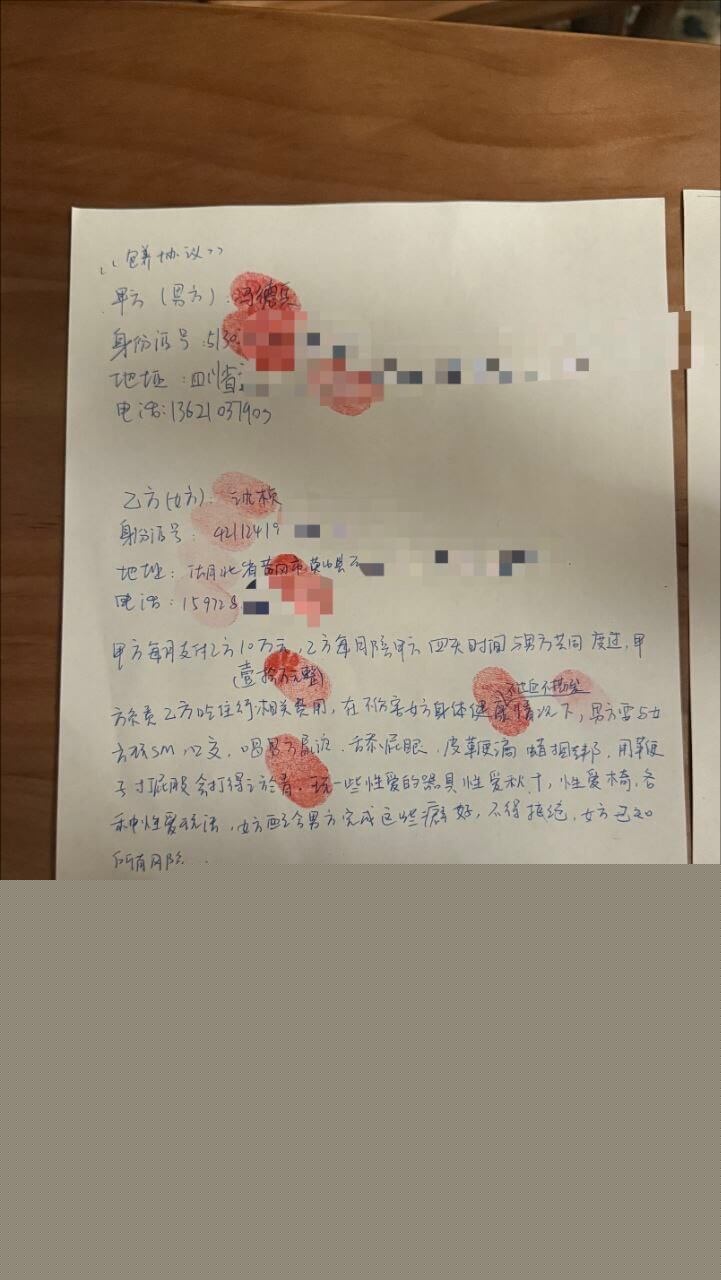 《包养协议》
甲方（男方）：冯德兵
身份证号：5130
地址：四川省
电话：13621037909
乙方（女方）：
身份证号：42112419
地址：湖北省黄冈市英山县
电话：159728
甲方每月支付乙方10万元，乙方每月陪甲方四天时间与男方共同度过，甲
（壹拾万元整）
方负责乙方吃住行相关费用，在不伤害女方身体健康情况下，男方要与女
方玩SM，口交，喝男方尿液，舔屁眼，皮鞭滴蜡捆绑，用鞭
子打屁股会打得淤青，玩一些性爱的器具性爱秋千，性爱椅，各
种性爱玩法，女方配合男方完成这些癖好，不得拒绝，女方已知
所有风险